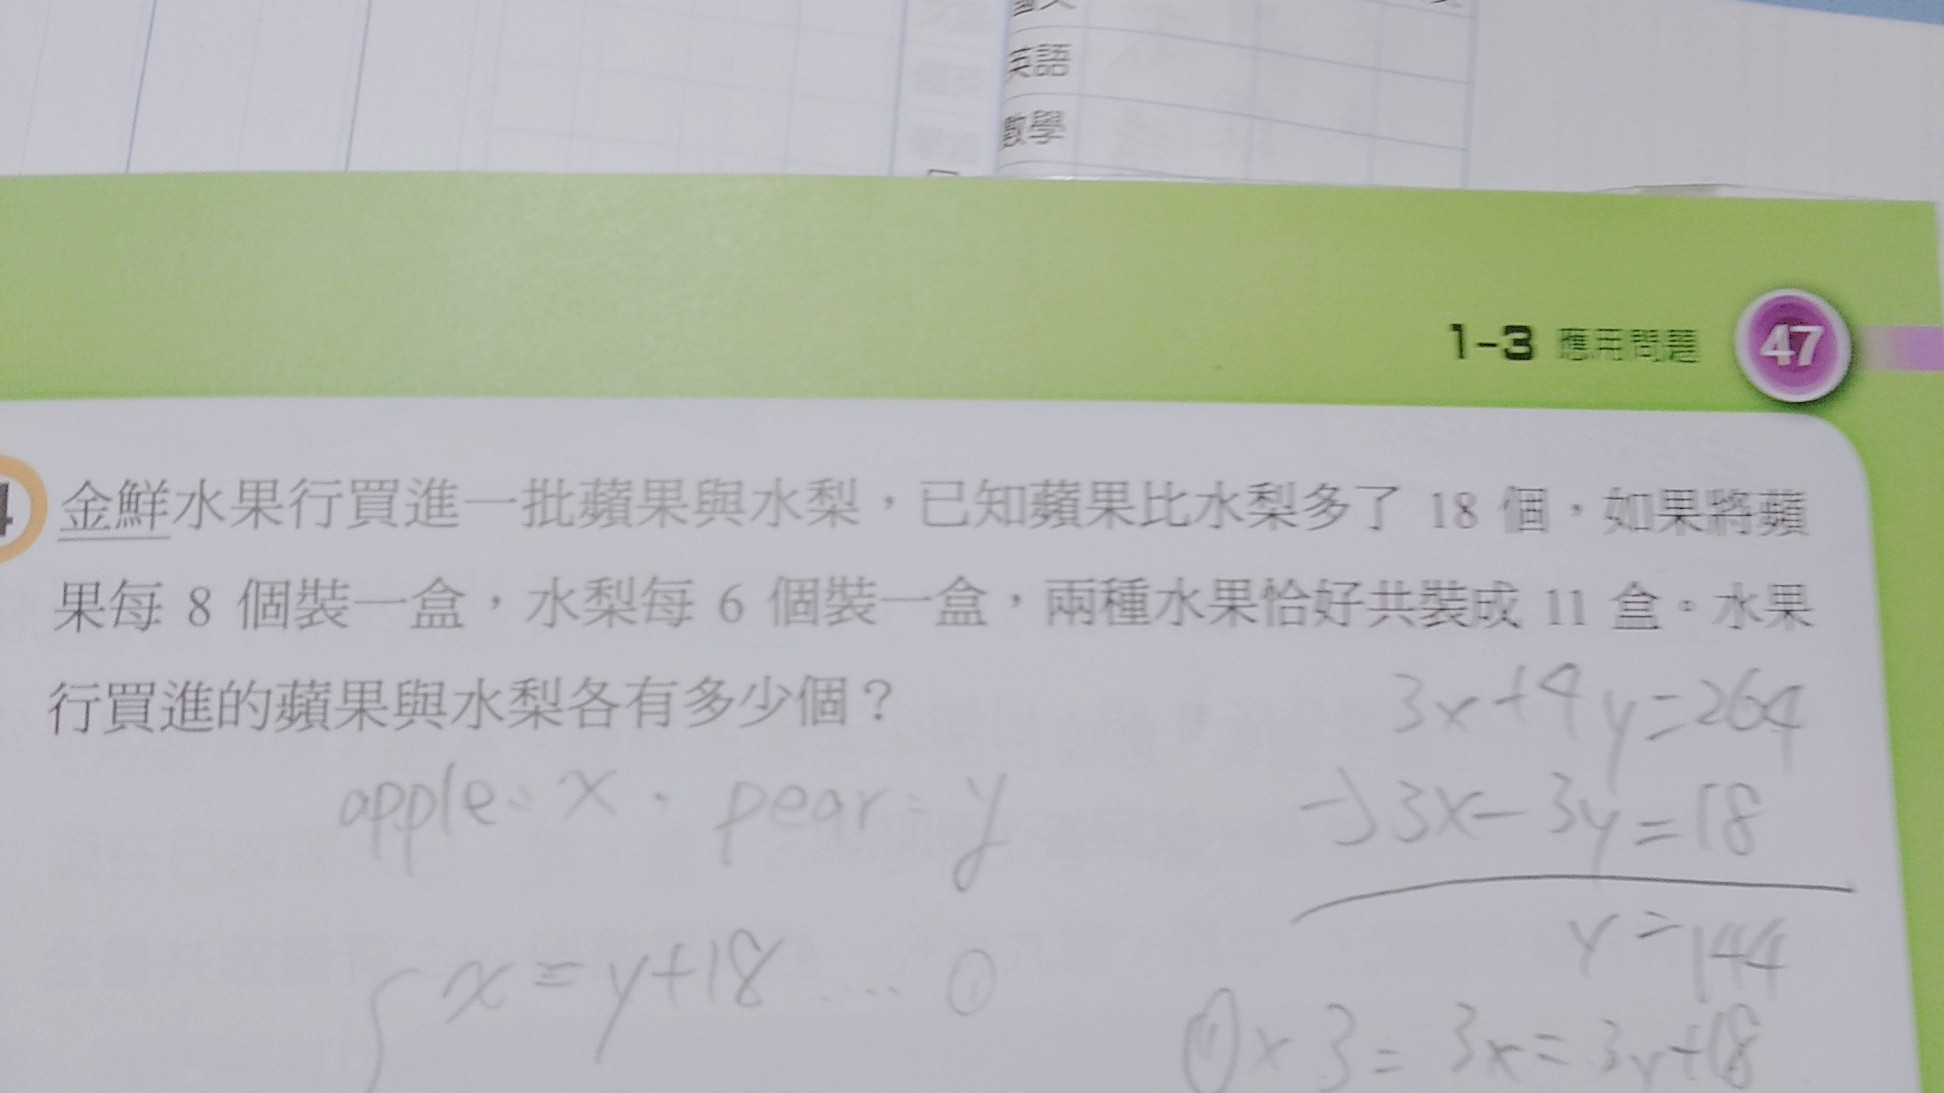 英語
數學
1-3 應用問題 47
金鮮水果行買進一批蘋果與水梨，已知蘋果比水梨多了 18 個，如果將蘋
果每 8 個裝一盒，水梨每 6 個裝一盒，兩種水果恰好共裝成 11 盒。水果
行買進的蘋果與水梨各有多少個？
3x+4y=264
-) 3x-3y=18
y=144
apple: x、pear: y
{ x=y+18 .... ①
①x3= 3x=3y+18